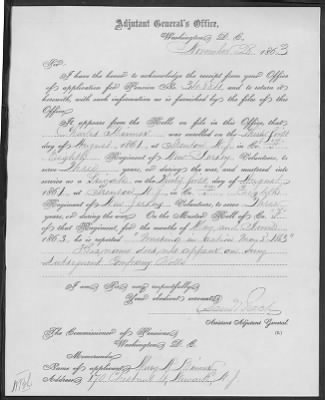 Adjutant General's Office,
Washington, D. C.
November 28, 1863
Sir:
I have the honor to acknowledge the receipt from your Office
of application for Pension No. and to return it
herewith, with such information as is furnished by the files of this
Office.
It appears from the Rolls on file in this Office, that
was enrolled on the Thirty first
day of August, 1861, at Trenton N.J., in Co. "F"
Eighth Regiment of New Jersey Volunteers, to serve
Three years, or during the war, and mustered into
service as a Private on the Thirty first day of August
1861, at Trenton N.J., in Co. Eighth
Regiment of New Jersey Volunteers, to serve Three
years, or during the war. On the Muster Roll of Co. "F"
of that Regiment, for the months of May and June
1863, he is reported "Missing in action May 3, 1863"
name does not appear on any
subsequent Company Rolls
I am Sir, very respectfully,
Your obedient servant,
Assistant Adjutant General.
The Commissioner of Pensions
Washington, D. C.
Memoranda:
Name of applicant, Mary
Address, Newark, N. J.